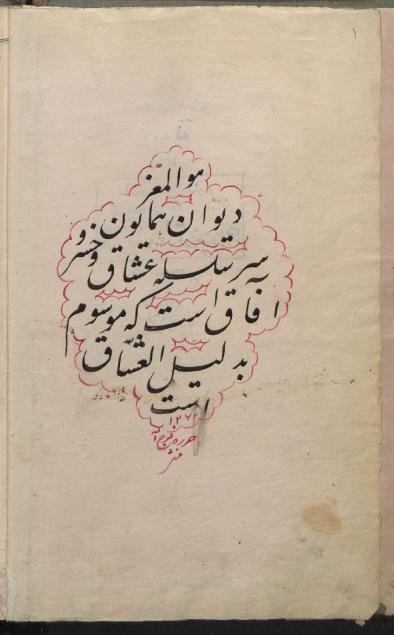 ۱
هو المعز
دیوان همایون و خسرو
سر سلسله عشاق
آفاق است که موسوم
بدلیل العشاق
است
۱۲۷۲
حرره